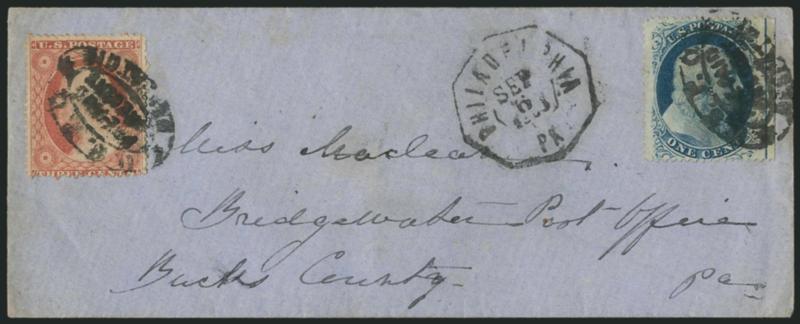 U.S. POSTAGE
THREE CENTS
PHILADELPHIA
SEP
16
PA
U.S. POSTAGE
ONE CENT
Miss Maclean
Bridgewater Post Office
Bucks County.
Pa